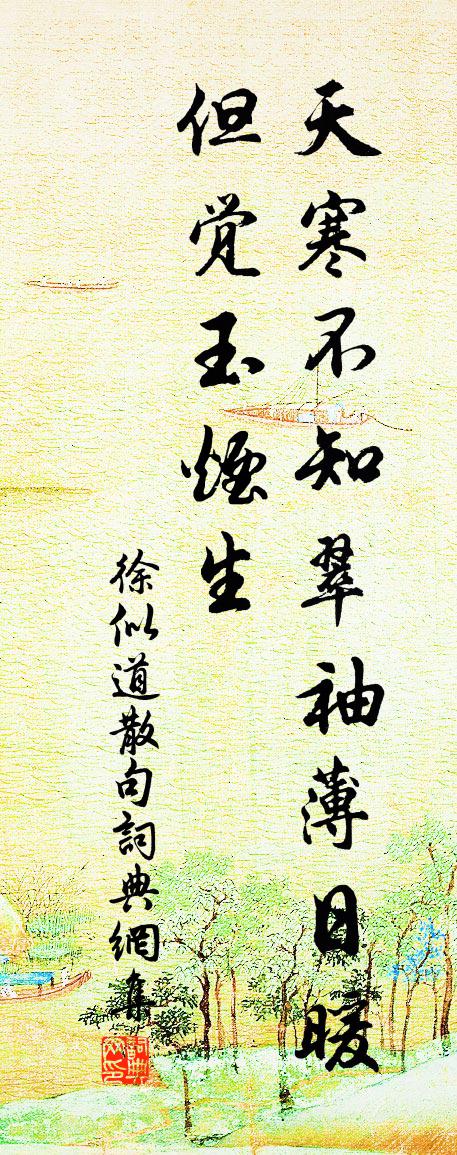 天寒不知翠袖薄日暖
但觉玉煙生
徐似道散句詞典網集